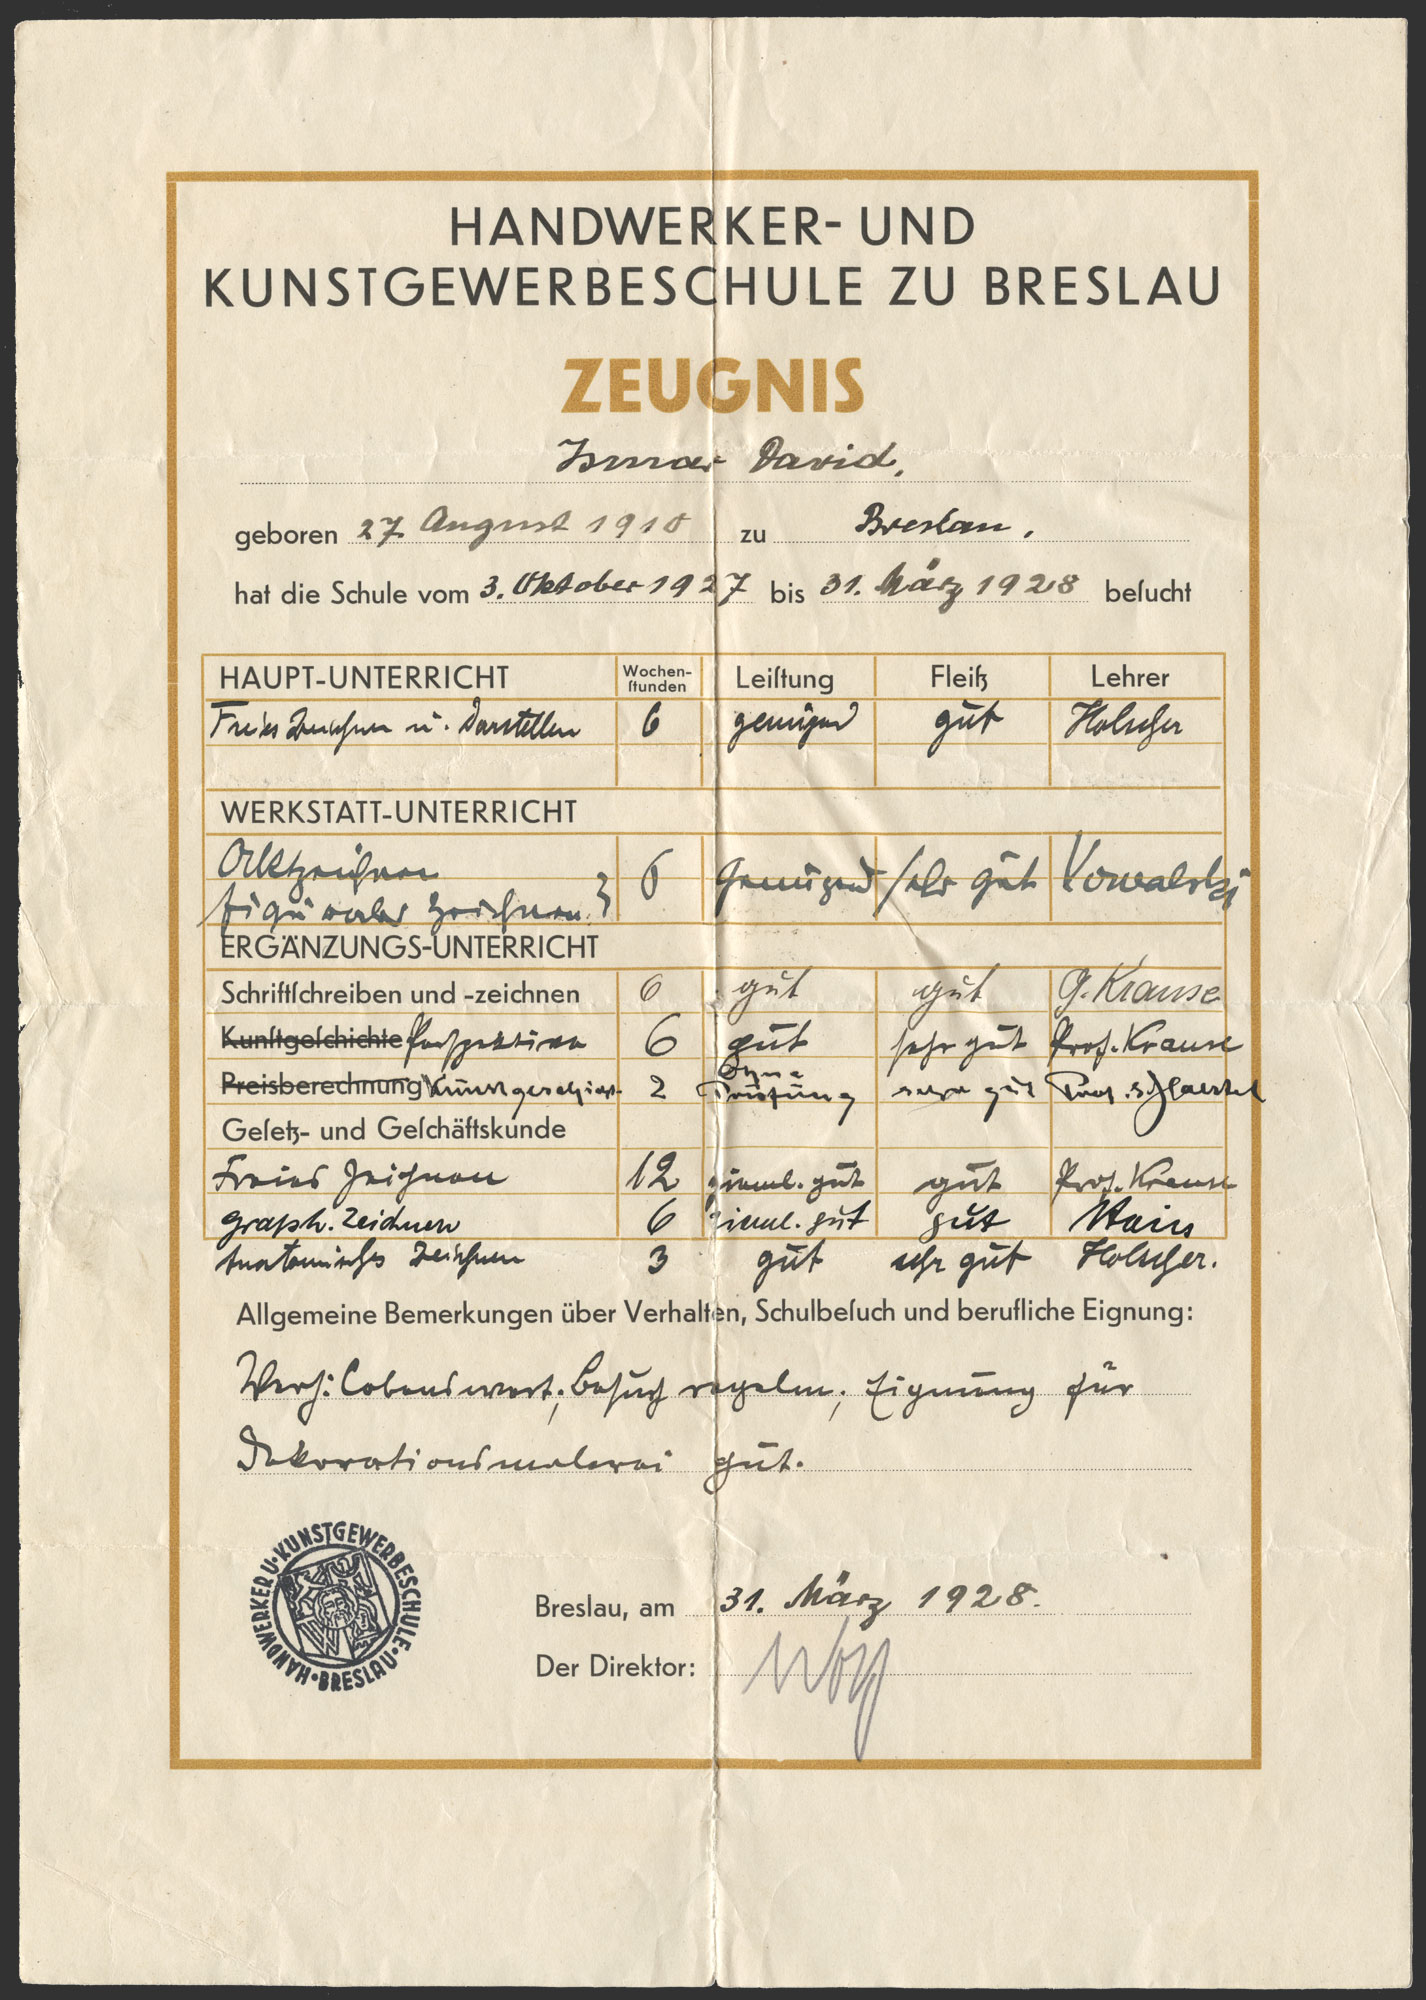 HANDWERKER- UND
KUNSTGEWERBESCHULE ZU BRESLAU
ZEUGNIS
Ismar David,
geboren 27. August 1910 zu Breslau,
hat die Schule vom 3. Oktober 1927 bis 31. März 1928 beſucht
HAUPT-UNTERRICHT Wochen-ſtunden Leiſtung Fleiß Lehrer
Freies Zeichnen u. Darstellen 6 genügend gut Holscher
WERKSTATT-UNTERRICHT
Aktzeichnen
figürliches Zeichnen. } 6 Genügend sehr gut Kowalski
ERGÄNZUNGS-UNTERRICHT
Schriftſchreiben und -zeichnen 6 gut gut G. Krause
Kunſtgeſchichte Perspektive 6 gut sehr gut Prof. Krause
Preisberechnung Kunstgeschichte 2 Ohne Prüfung sehr gut Prof.
Geſetz- und Geſchäftskunde
Freies Zeichnen 12 zieml. gut gut Prof. Krause
graph. Zeichnen 6 zieml. gut gut
Anatomisches Zeichnen 3 gut sehr gut Holscher.
Allgemeine Bemerkungen über Verhalten, Schulbeſuch und berufliche Eignung:
Verh: Lobenswert; Besuch regelm.; Eignung für
Dekorationsmalerei gut.
HANDWERKER U. KUNSTGEWERBESCHULE · BRESLAU ·
Breslau, am 31. März 1928.
Der Direktor: